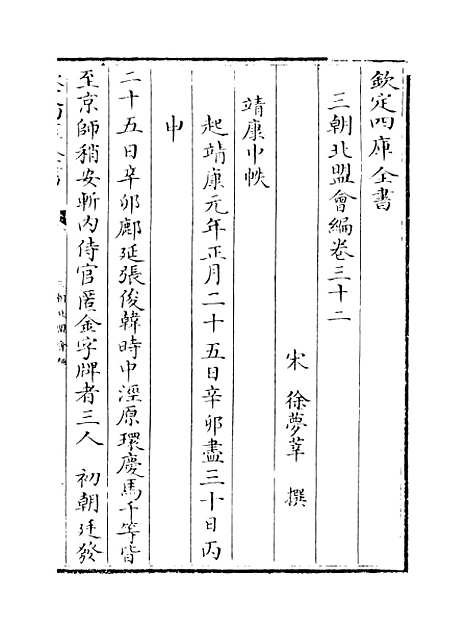 欽定四庫全書
三朝北盟會編卷三十二
宋 徐夢莘 撰
靖康中帙
起靖康元年正月二十五日辛卯盡三十日丙
申
二十五日辛卯鄜延張俊韓時中涇原環慶馬千等皆
至京師稍安斬内侍官匿金字牌者三人 初朝廷發
三朝北盟會編